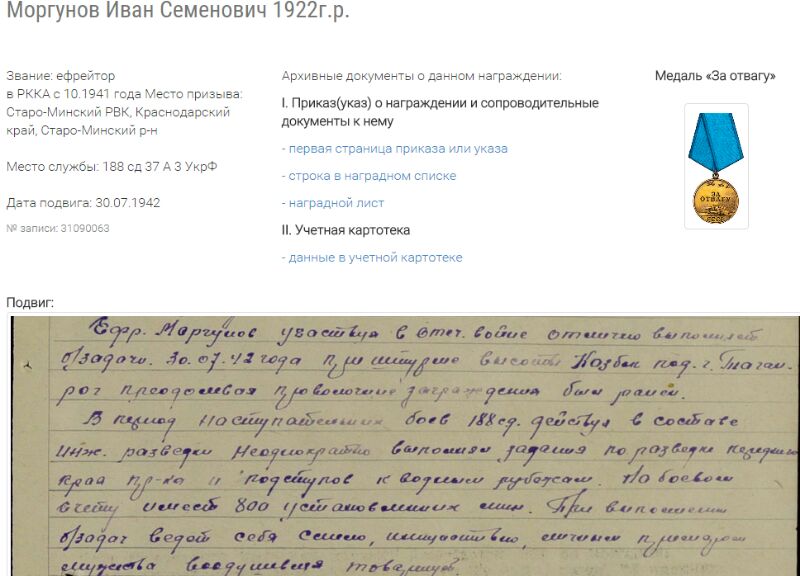 Моргунов Иван Семенович 1922г.р.
Звание: ефрейтор
в РККА с 10.1941 года Место призыва:
Старо-Минский РВК, Краснодарский
край, Старо-Минский р-н
Место службы: 188 сд 37 А 3 УкрФ
Дата подвига: 30.07.1942
№ записи: 31090063
Архивные документы о данном награждении:
I. Приказ(указ) о награждении и сопроводительные
документы к нему
- первая страница приказа или указа
- строка в наградном списке
- наградной лист
II. Учетная картотека
- данные в учетной картотеке
Медаль «За отвагу»
ЗА
ОТВАГУ
СССР
Подвиг:
Ефр. Моргунов участвуя в отеч. войне отлично выполняет
б/задачи. 30.07.42 года при штурме высоты Казбек под. г. Таган-
рог преодолевая проволочные заграждения был ранен.
В период наступательных боев 188 сд. действуя в составе
инж. разведки неоднократно выполнял задания по разведки переднего
края пр-ка и подступов к водным рубежам. На боевом
счету имеет 800 установленных мин. При выполнении
б/задач ведет себя смело, личным примером
мужества воодушевляя товарищей.